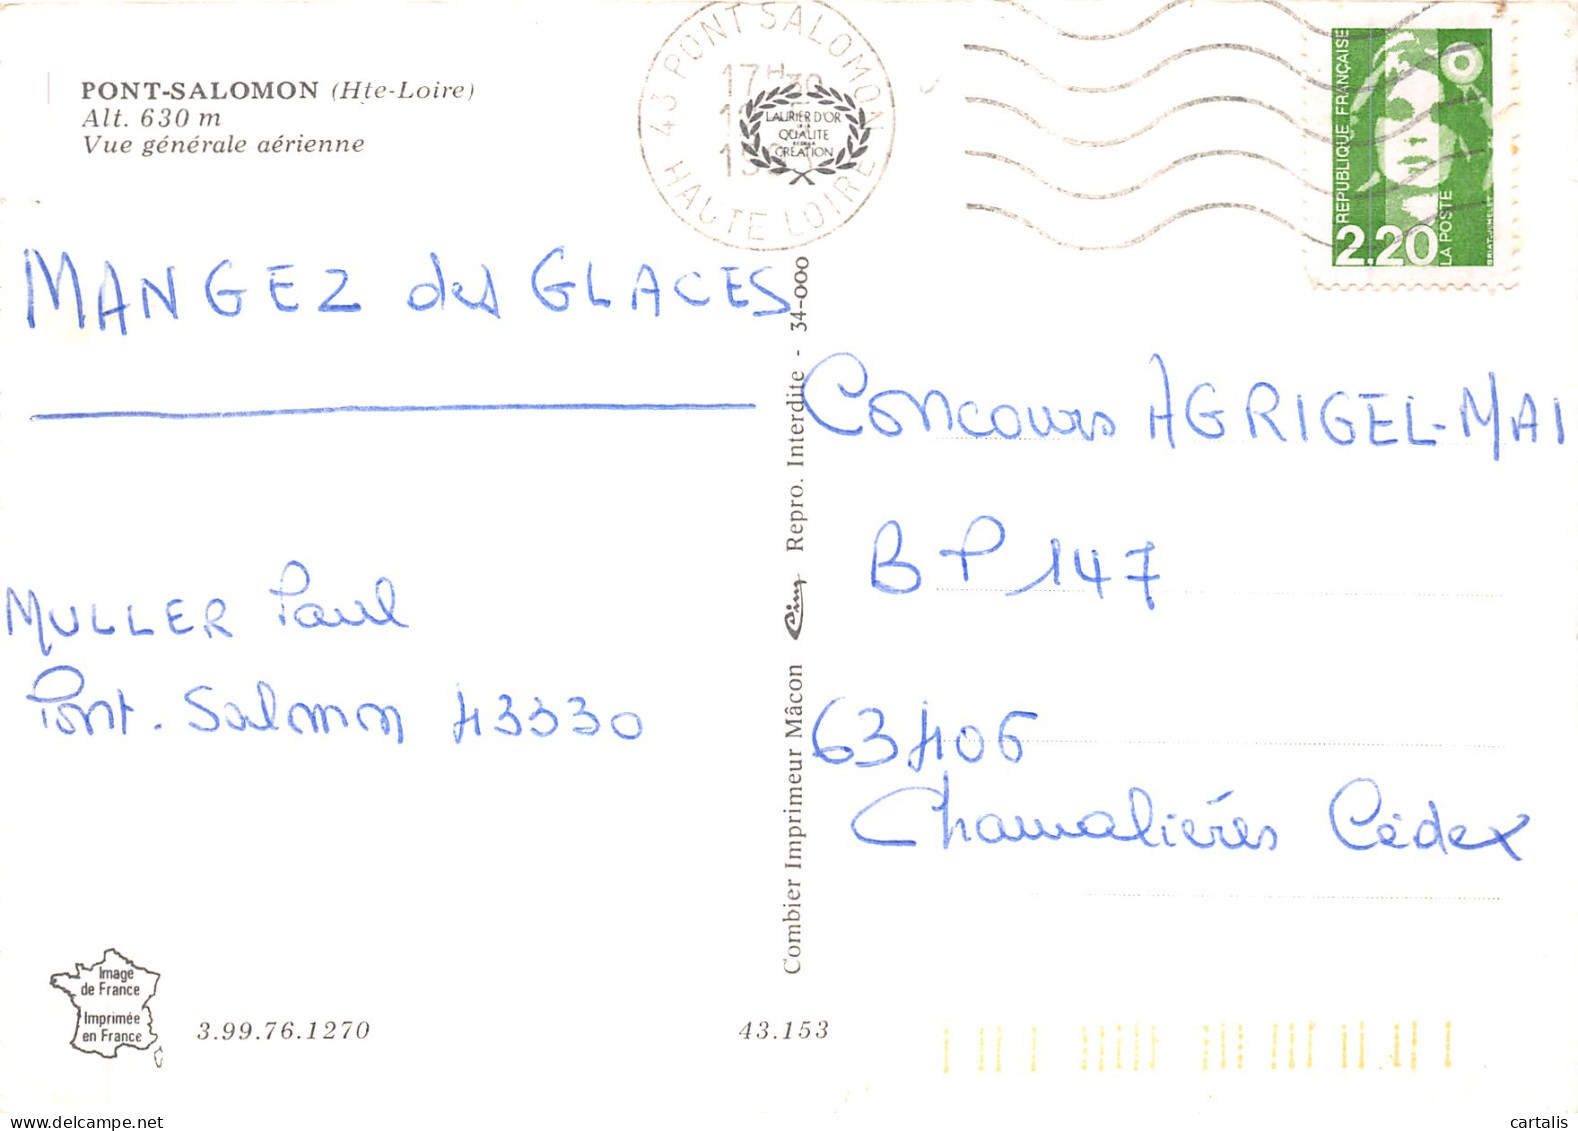 PONT-SALOMON (Hte-Loire)
Alt. 630 m
Vue générale aérienne
43 PONT SALOMON
17H30
HAUTE LOIRE
LAURIER D'OR
QUALITE
CREATION
REPUBLIQUE FRANÇAISE
2,20
LA POSTE
BRIAT-JUMELET
MANGEZ des GLACES
MULLER Paul
Pont-Salomon 43330
Combier Imprimeur Mâcon Cim Repro. Interdite - 34-000
Concours AGRIGEL-MAI
BP 147
63406
Chamaliéres Cédex
Image
de France
Imprimée
en France
3.99.76.1270
43.153
www.delcampe.net
cartalis